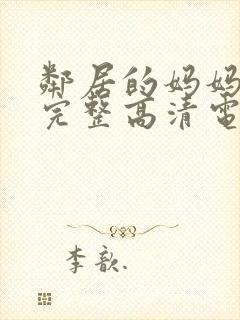 鄰居的妈妈
完整高清電
李歆.